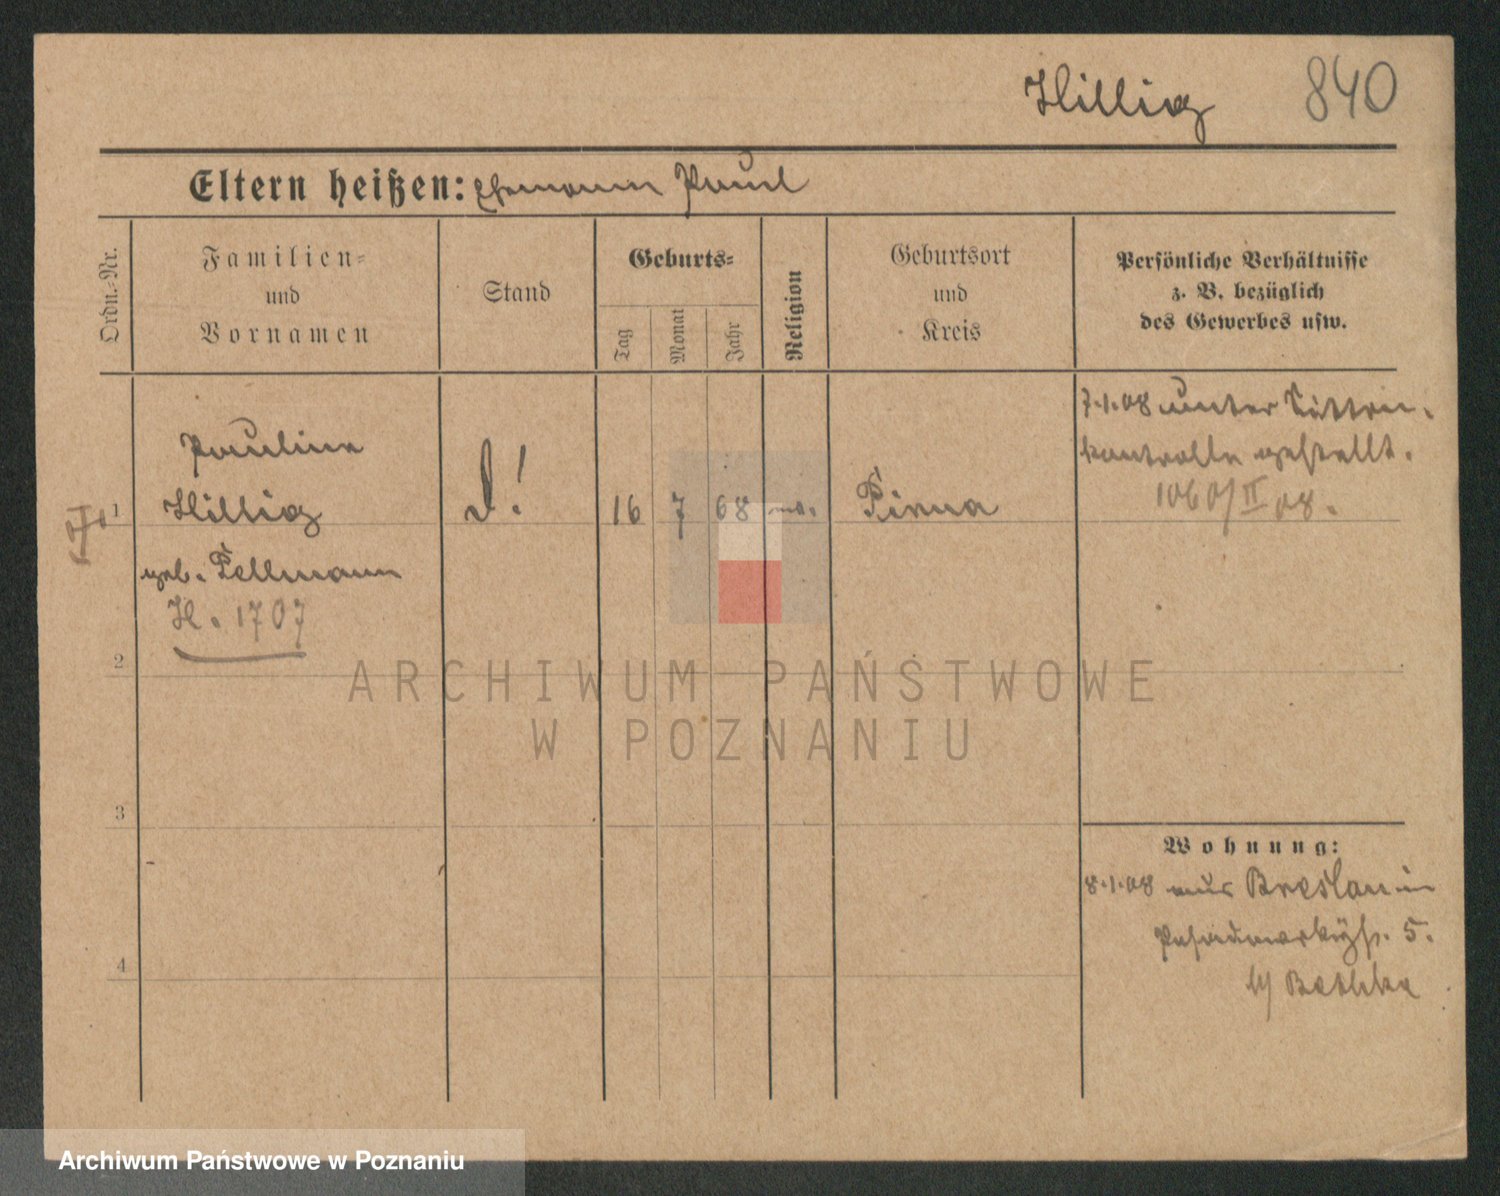 Hillig 840
Eltern heißen: Ehemann Paul
Ordn.-Nr.
Familien-
und
Vornamen
Stand
Geburts-
Tag
Monat
Jahr
Religion
Geburtsort
und
Kreis
Persönliche Verhältnisse
z. B. bezüglich
des Gewerbes usw.
7.1.08 unter Sitten-
kontrolle gestellt.
1060/II 08.
Pauline
1 Hillig 16 7 68 Pirna
geb. Fellmann
H. 1707
2
3
4
Wohnung:
8.1.08 aus Breslau in
5.
b/ Bethke
ARCHIWUM PAŃSTWOWE
W POZNANIU
Archiwum Państwowe w Poznaniu